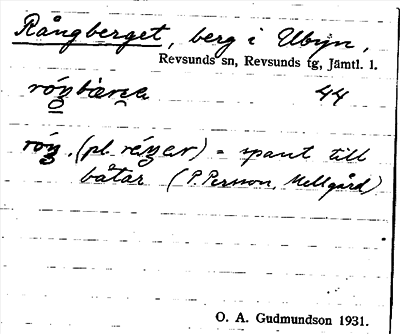 Rångberget, berg i Ubyn,
Revsunds sn, Revsunds tg, Jämtl. l.
44
(pl. = spant till
båtar (P. Persson, Mellgård)
O. A. Gudmundson 1931.